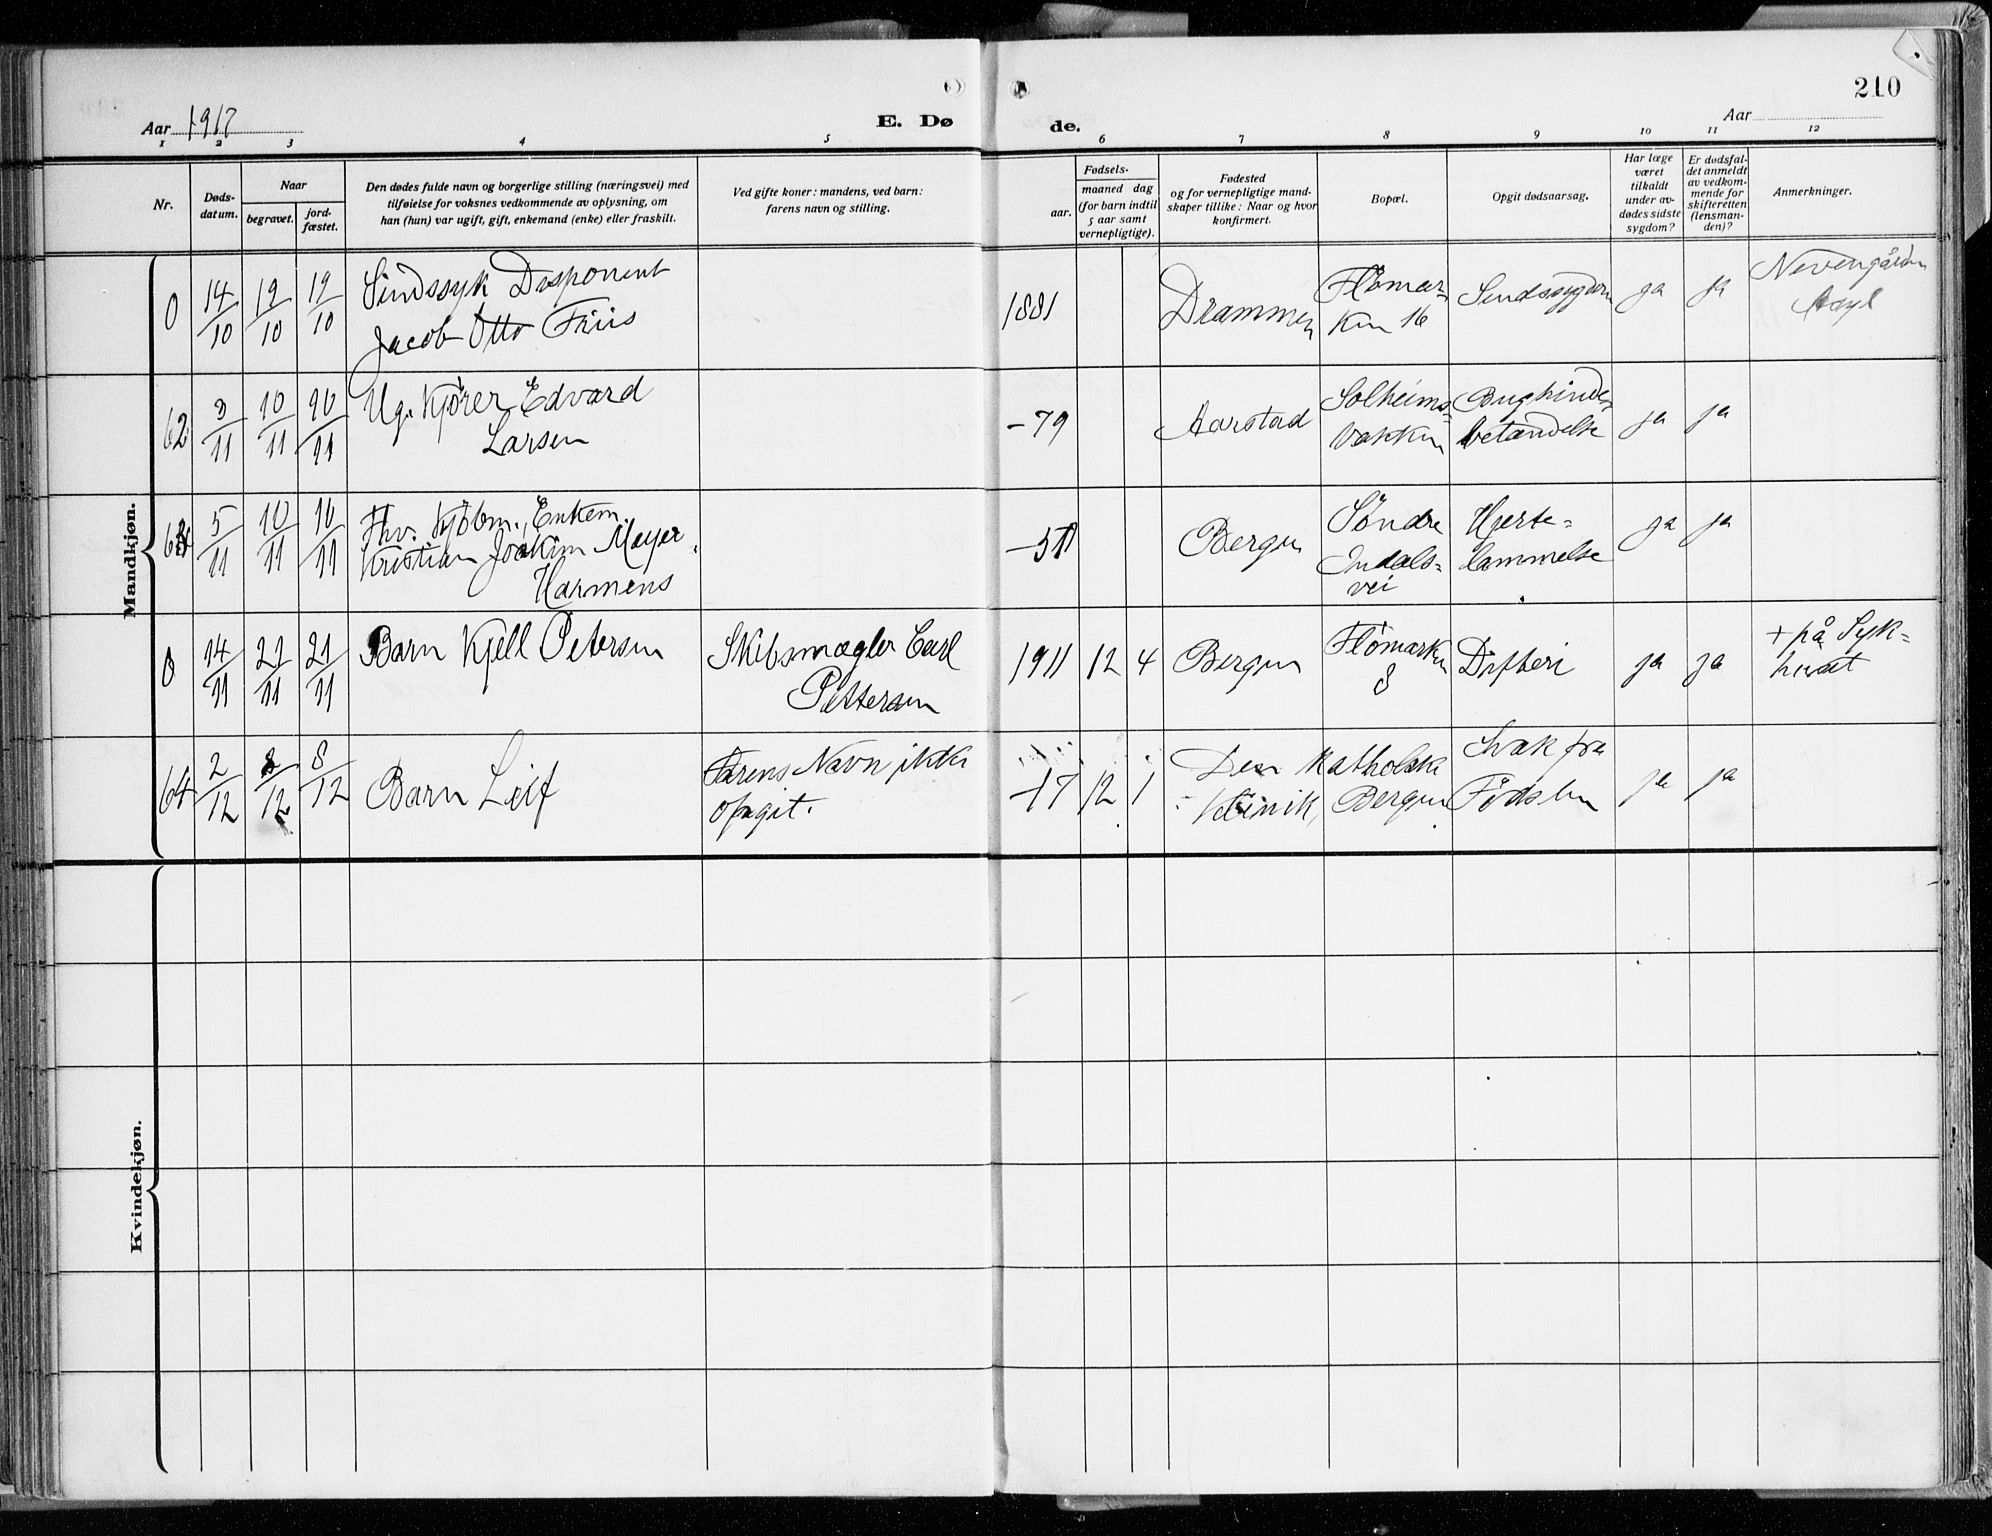 210
Aar 1917
E. Dø
de.
Aar
1 2 3 4 5 6 7 8 9 10 11 12
Nr.
Døds-
datum.
Naar
begravet.
jord-
fæstet.
Den dødes fulde navn og borgerlige stilling (næringsvei) med
tilføielse for voksnes vedkommende av oplysning, om
han (hun) var ugift, gift, enkemand (enke) eller fraskilt.
Ved gifte koner: mandens, ved barn:
farens navn og stilling.
Fødsels-
aar.
maaned dag
(for barn indtil
5 aar samt
vernepligtige).
Fødested
og for vernepligtige mand-
skaper tillike: Naar og hvor
konfirmert.
Bopæl.
Opgit dødsaarsag.
Har læge
været
tilkaldt
under av-
dødes sidste
sygdom?
Er dødsfal-
det anmeldt
av vedkom-
mende for
skifteretten
(lensman-
den)?
Anmerkninger.
Mandkjøn.
0
14/10
19/10
19/10
Sindssyk Disponent
Jacob Otto Friis
1881
Drammen
Flömar-
ken 16
Sindssygdom
ja
ja
Nevengården
Asyl
62
3/11
10/11
10/11
Ug. Kjörer Edvard
Larsen
-79
Aarstad
Solheims-
vakken
Bughinde-
betændelse
ja
ja
63
5/11
10/11
10/11
Fhv. Kjöbm., Enkem.
Kristian Joakim Meyer
Harmens
Bergen
Söndre
Indals-
vei
Hjerte-
lammelse
ja
ja
0
14/11
21/11
21/11
Barn Kjell Petersen
Skibsmægler Carl
Pettersen
1911 12 4
Bergen
Flömarken
8
Difteri
ja
ja
+ på Syk-
huset
64
2/12
8/12
8/12
Barn Leif
Farens Navn ikke
opgit.
-17 12 1
Den katholske
Klinik, Bergen
Svak fra
Födslen
ja
ja
Kvindekjøn.